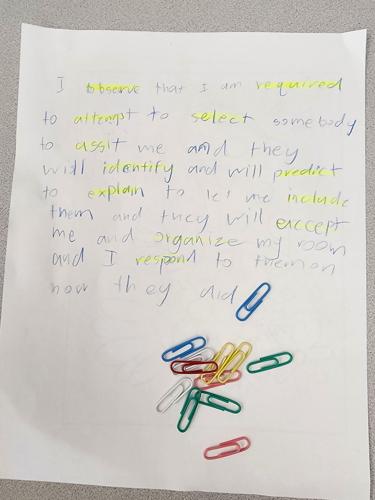 I observe that I am required
to attempt to select somebody
to assit me and they
will identify and will predict
to explain to let me include
them and they will except
me and organize my room
and I respond to them on
how they did